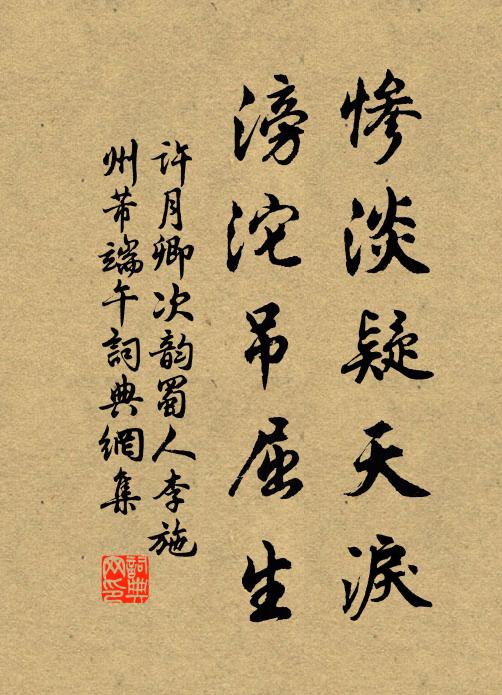 惨淡疑天淚
滂沱吊屈生
許月卿次韵蜀人李施
州芾端午詞典網集
詞典网印